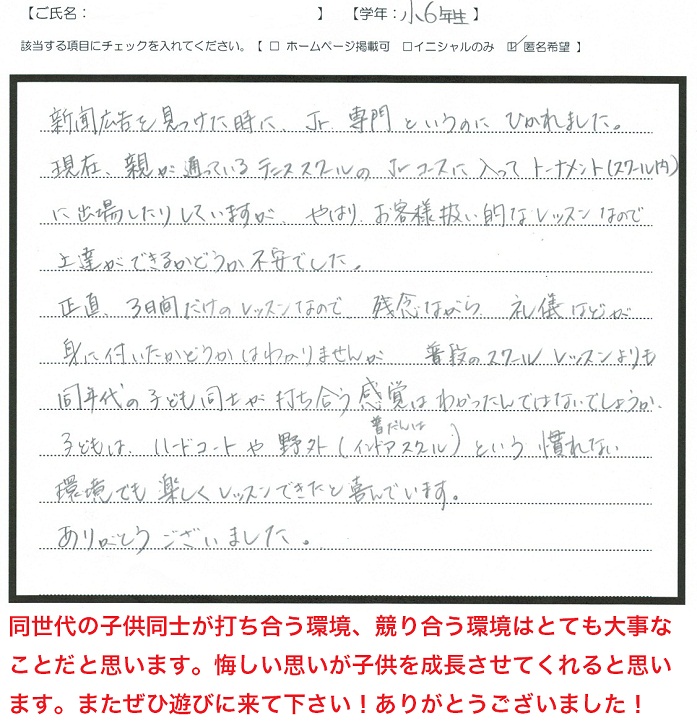 【ご氏名： 】 【学年：小6年生】
該当する項目にチェックを入れてください。【 □ ホームページ掲載可 □イニシャルのみ ☑ 匿名希望 】
新聞広告を見つけた時に、Jr. 専門というのにひかれました。
現在、親が通っているテニススクールのJrコースに入ってトーナメント(スクール内)
に出場したりしていますが、やはり、お客様扱い的なレッスンなので
上達ができるかどうか不安でした。
正直、3日間だけのレッスンなので 残念ながら、礼儀などが
身に付いたかどうかはわかりませんが 普段のスクールレッスンよりも
同年代の子ども同士が打ち合う感覚はわかったんではないでしょうか。
普だんは
子どもは、ハードコートや野外(インドアスクール)という慣れない
環境でも楽しくレッスンできたと喜んでいます。
ありがとうございました。
同世代の子供同士が打ち合う環境、競り合う環境はとても大事な
ことだと思います。悔しい思いが子供を成長させてくれると思い
ます。またぜひ遊びに来て下さい！ありがとうございました！